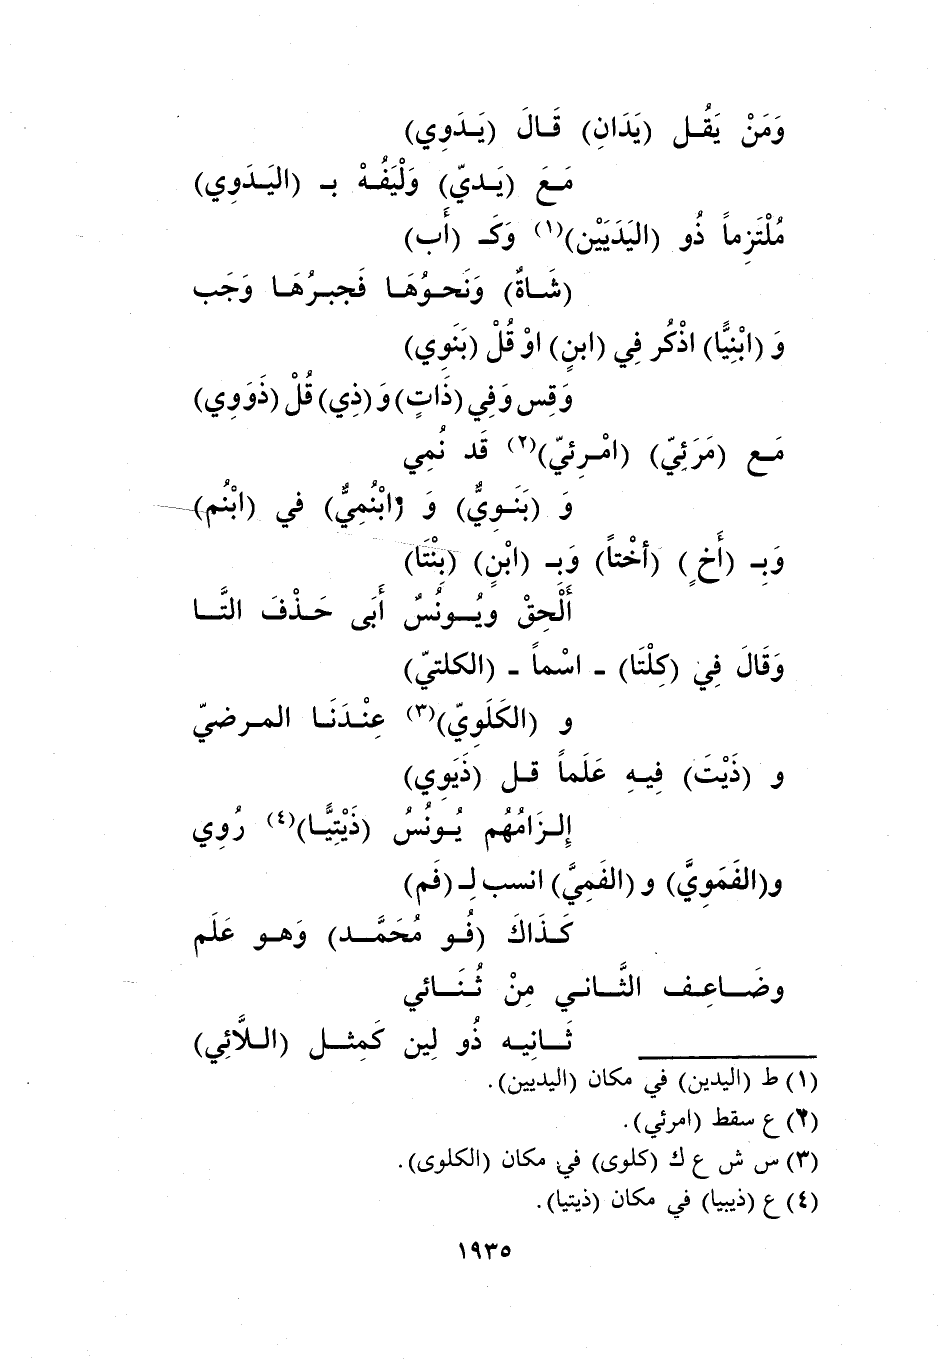 وَمَنْ يَقُـل (يَدَانِ) قَـالَ (يَـدَوِي)
مَـعَ (يَـديّ) وَلْيَفُـهْ بـ (اليَـدَوِي)
مُلْتَزِماً ذُو (اليَدَيَيْن)(١) وَكَـ (أَب)
(شَـاةٌ) وَنَحـوُهَـا فَجبـرُهَـا وَجَب
وَ (ابْنِيًّا) اذْكُر فِي (ابنٍ) اوْ قُلْ (بَنَوِي)
وَقِس وَفِي (ذَاتٍ) وَ (ذِي) قُلْ (ذَوَوِي)
مَـع (مَرَئِيّ) (امْـرِئيّ)(٢) قَد نُمِي
وَ (بَنَـوِيٌّ) وَ (ابْنُمِيٌّ) في (ابْنُم)
وَبِـ (أَخٍ) (أخْتاً) وَبِـ (ابْنٍ) (بِنْتَا)
أَلْحِقْ ويُـونُسٌ أَبَى حَـذْفَ التَّـا
وَقَالَ فِي (كِلْتَا) ـ اسْماً ـ (الكلتيّ)
و (الكَلَوِيّ)(٣) عِنْـدَنَـا المـرضيّ
و (ذَيْتَ) فِيـهِ عَلَماً قـل (ذَيَوِي)
إِلـزَامُهُم يُـونُسُ (ذَيْتِيًّـا)(٤) رُوِي
و(الفَمَوِيَّ) و (الفَمِيَّ) انسب لِـ (فَم)
كَـذَاكَ (فُـو مُحَمَّـد) وَهـو عَلَم
وضَـاعِـف الثَّـانـي مِنْ ثُـنَـائي
ثَـانِيـه ذُو لِين كَمِثـل (الـلَّائِي)
(١) ط (اليدين) في مكان (اليديين).
(٢) ع سقط (امرئي).
(٣) س ش ع ك (كلوى) في مكان (الكلوى).
(٤) ع (ذيبيا) في مكان (ذيتيا).
١٩٣٥